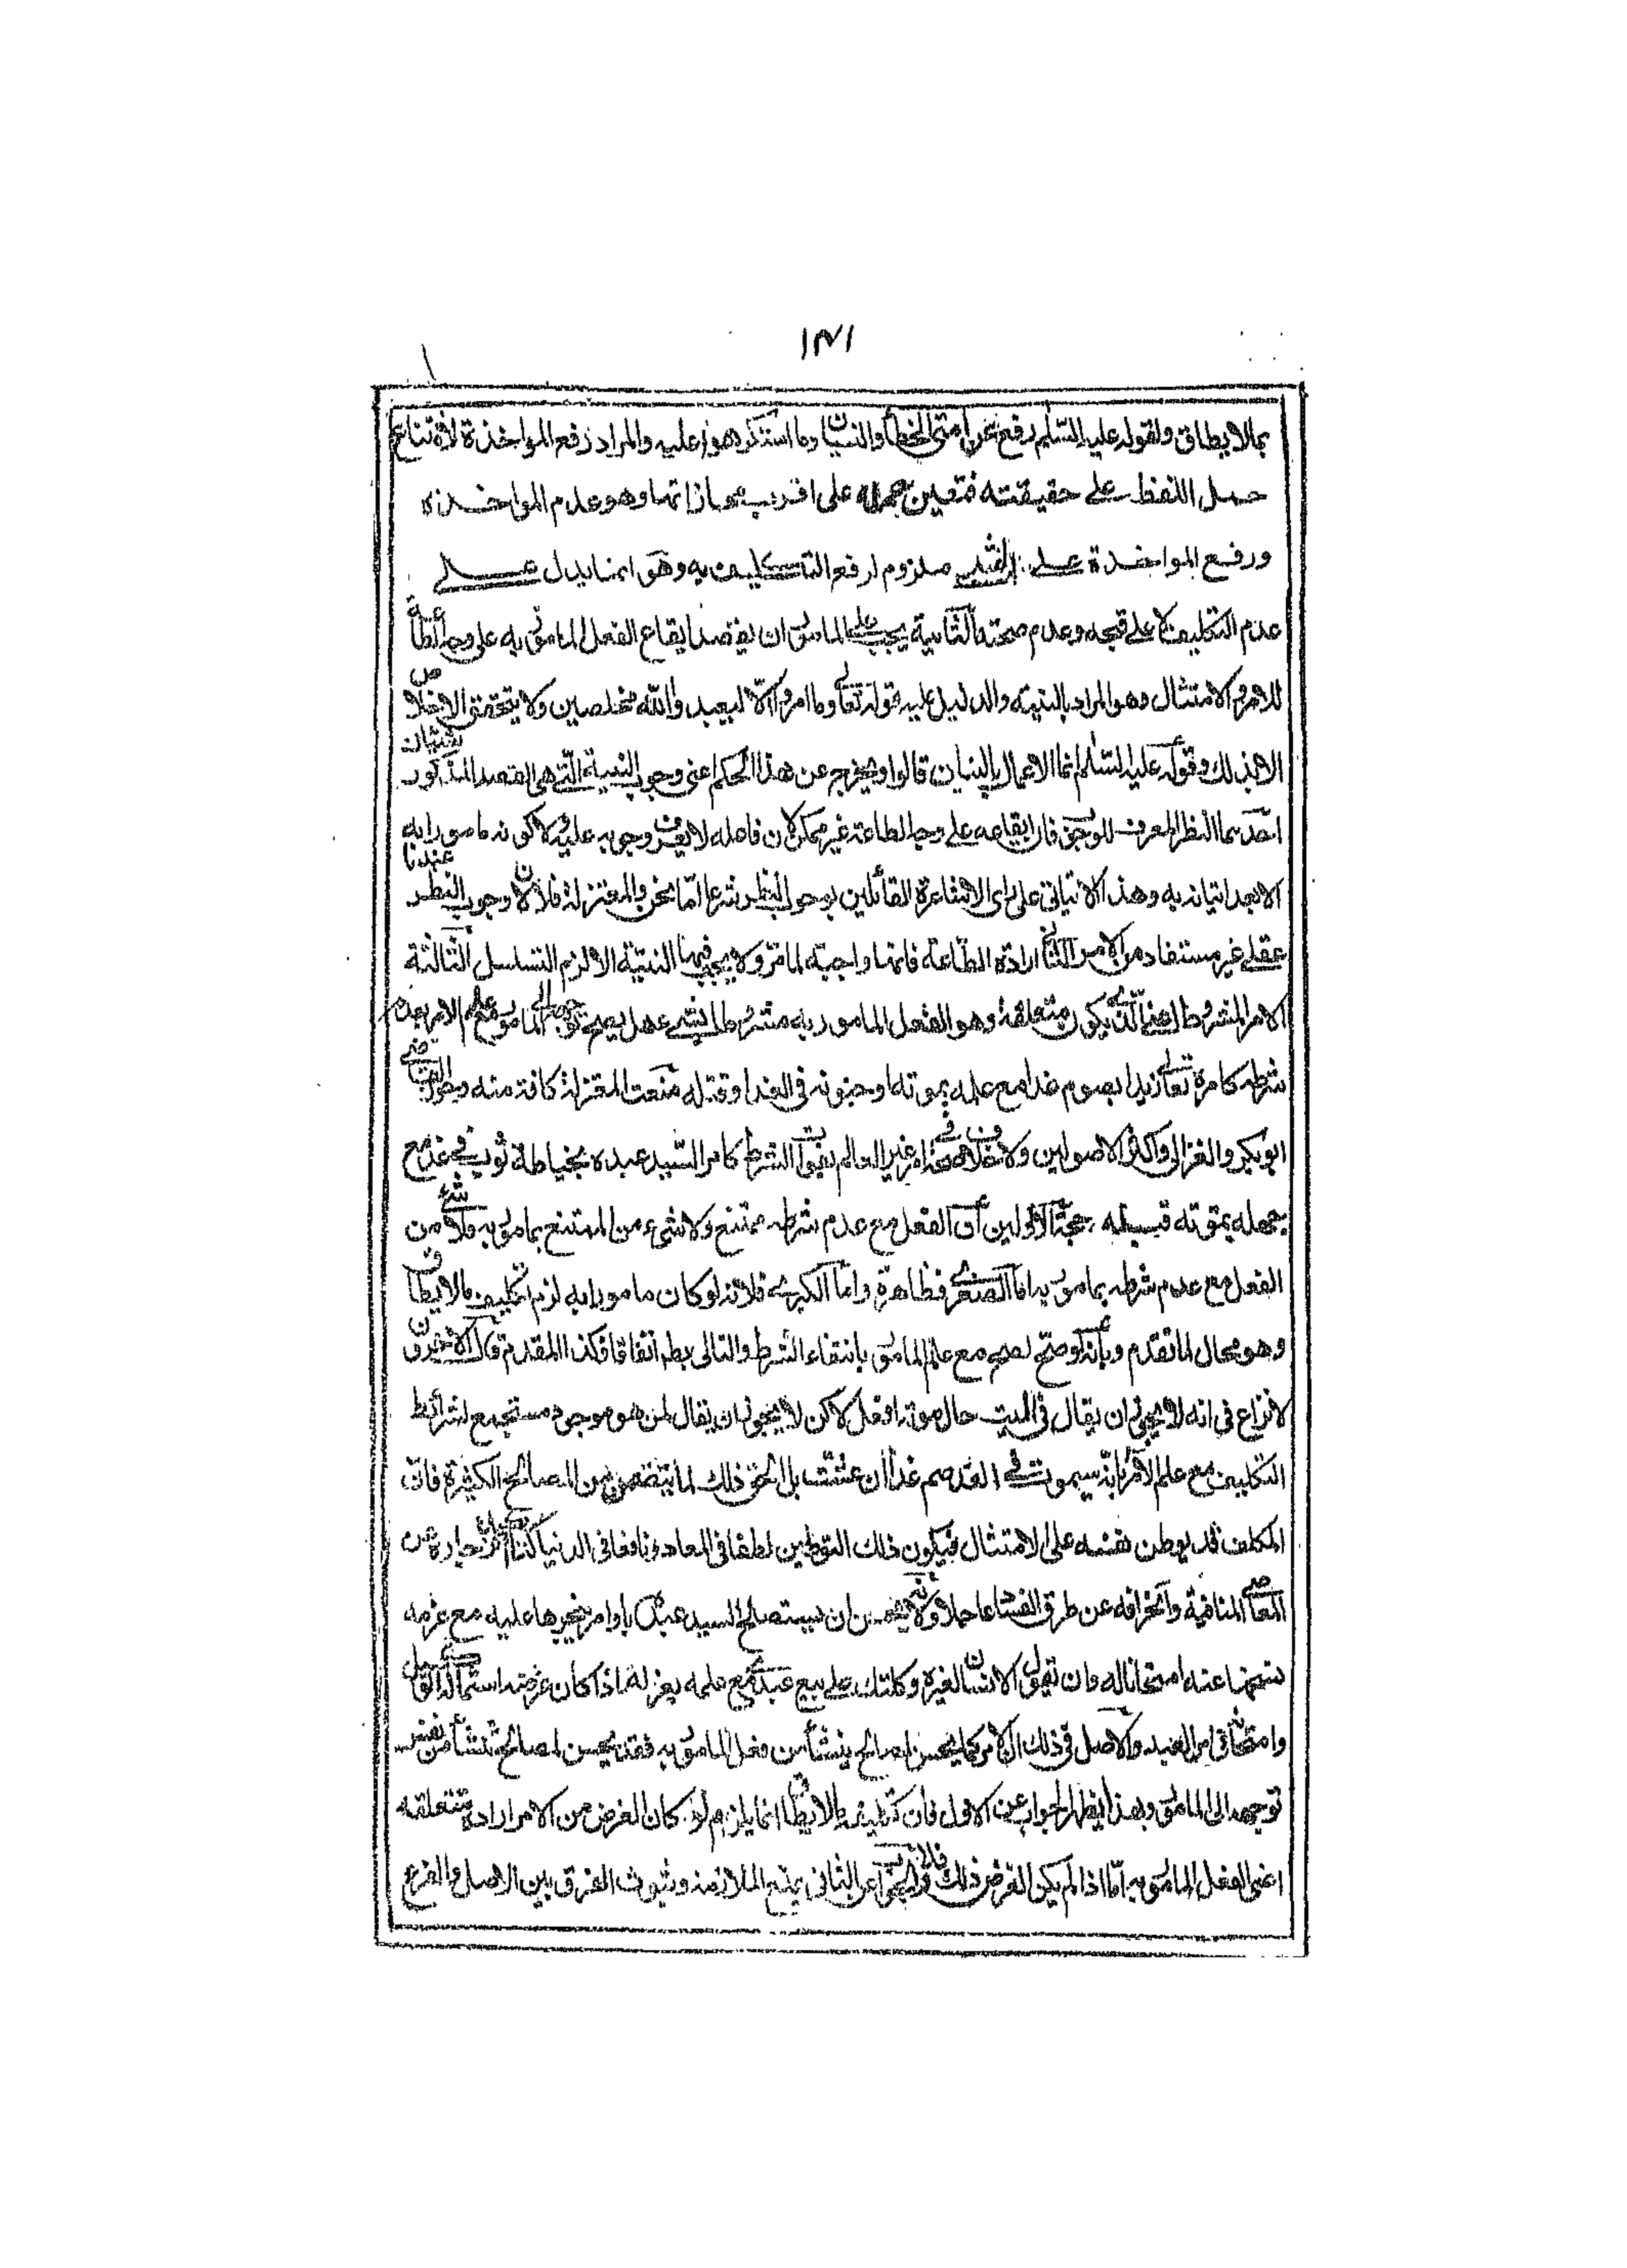 ١٣١
بما لا يطاق ولقوله عليه السّلم رفع عن امتى الخطأ والنسيان وما استكرهوا عليه والمراد رفع المواخذة لامتناع
حمل اللفظ على حقيقته فتعين حمله على اقرب مجازاتها وهو عدم المواخذة
ورفع المواخذة على الفعل ملزوم لرفع التكليف به وهو انما يدل على
عدم التكليف لا على قبحه وعدم صحته الثانية يجب على المامور ان يقصد ايقاع الفعل المامور به على وجه الطاعة
للامر والامتثال وهو المراد بالنية والدليل عليه قوله تعالى وما امروا الا ليعبدوا الله مخلصين ولا يتحقق الاخلاص
الا بذلك وقوله عليه السّلم انما الاعمال بالنيات قالوا ويخرج عن هذا الحكم اعنى وجوب النية التى هى القصد المذكور شيئان
احدهما النظر المعرف للوجوب فان ايقاعه على وجه الطاعة غير ممكن لان فاعله لا يعرف وجوبه عليه ولا كونه مامورا به
الا بعد اتيانه به وهذا لا يتاتى على راى الاشاعرة القائلين بوجوب النظر شرعا امّا نحن والمعتزلة فلا لان وجوب النظر عندنا
عقلى غير مستفاد من الامر الثانى ارادة الطاعة فانها واجبة لما مر ولا يجب فيها النية والا لزم التسلسل الثالثة
الامر المشروط اعنى الذى يكون متعلقه وهو الفعل المامور به مشروطا بشىء هل يصح توجهه الى المامور مع علم الامر بعدم
شرطه كامره تعالى زيدا بصوم غدا مع علمه بموته او جنونه فى الغد او قتله منعت المعتزلة كافة منه وجوزه القاضى
ابو بكر والغزالى واكثر الاصولين ولا خلاف فى جوازه من غير العالم بفوات الشرط كامر السّيد عبده بخياطة ثوب فى غد مع
جهله بموته قبله حجّة الاولين أن الفعل مع عدم شرطه ممتنع ولا شىء من الممتنع بمامور به فلا شىء من
الفعل مع عدم شرطه بمامور به امّا الصغرى فظاهرة وامّا الكبرى فلانه لو كان مامورا به لزم تكليف ما لا يطاق
وهو محال لما تقدم وبانه لو صحّ لصح مع علم المامور بانتفاء الشرط والتالى بط اتفاقا فكذا المقدم قال الاخرون
لا نزاع فى انه لا يجوز ان يقال فى الميت حال موته افعل لاكن لا يجوز ان يقال لمن هو موجود مستجمع لشرائط
التكليف مع علم الامر بانّه سيموت فى الغد صم غدا ان عشت بل الحق ذلك لما يتضمن من المصالح الكثيرة فان
المكلف قد يوطن نفسه على الامتثال فيكون ذلك التوطين لطفا فى المعاد ونافعا فى الدنيا
المعاصى المنافية وانحرافه عن طرق الفساد عاجلا ولانه يحسن ان يستصلح السيد عبده باوامر ينجزها عليه مع عزمه
نسخها عنه امتحانا له وان يقول الانسان لغيره وكلتك على بيع عبدى مع علمه بعزله اذا كان غرضه استمالة الوكيل
وامتحانه فى امر العبد والاصل فى ذلك ان الامر كما يحسن لمصالح ينشأ من فعل المامور به فقد يحسن لمصالح تنشأ من نفس
توجهه الى المامور وبهذا يظهر الجواب عن الاول فان تكليف ما لا يطاق انما يلزم لو كان الغرض من الامر ارادة متعلقه
اعنى الفعل المامور به امّا اذا لم يكن الغرض ذلك فلا والجواب عن الثانى بمنع الملازمة وثبوت الفرق بين الاصل والفرع